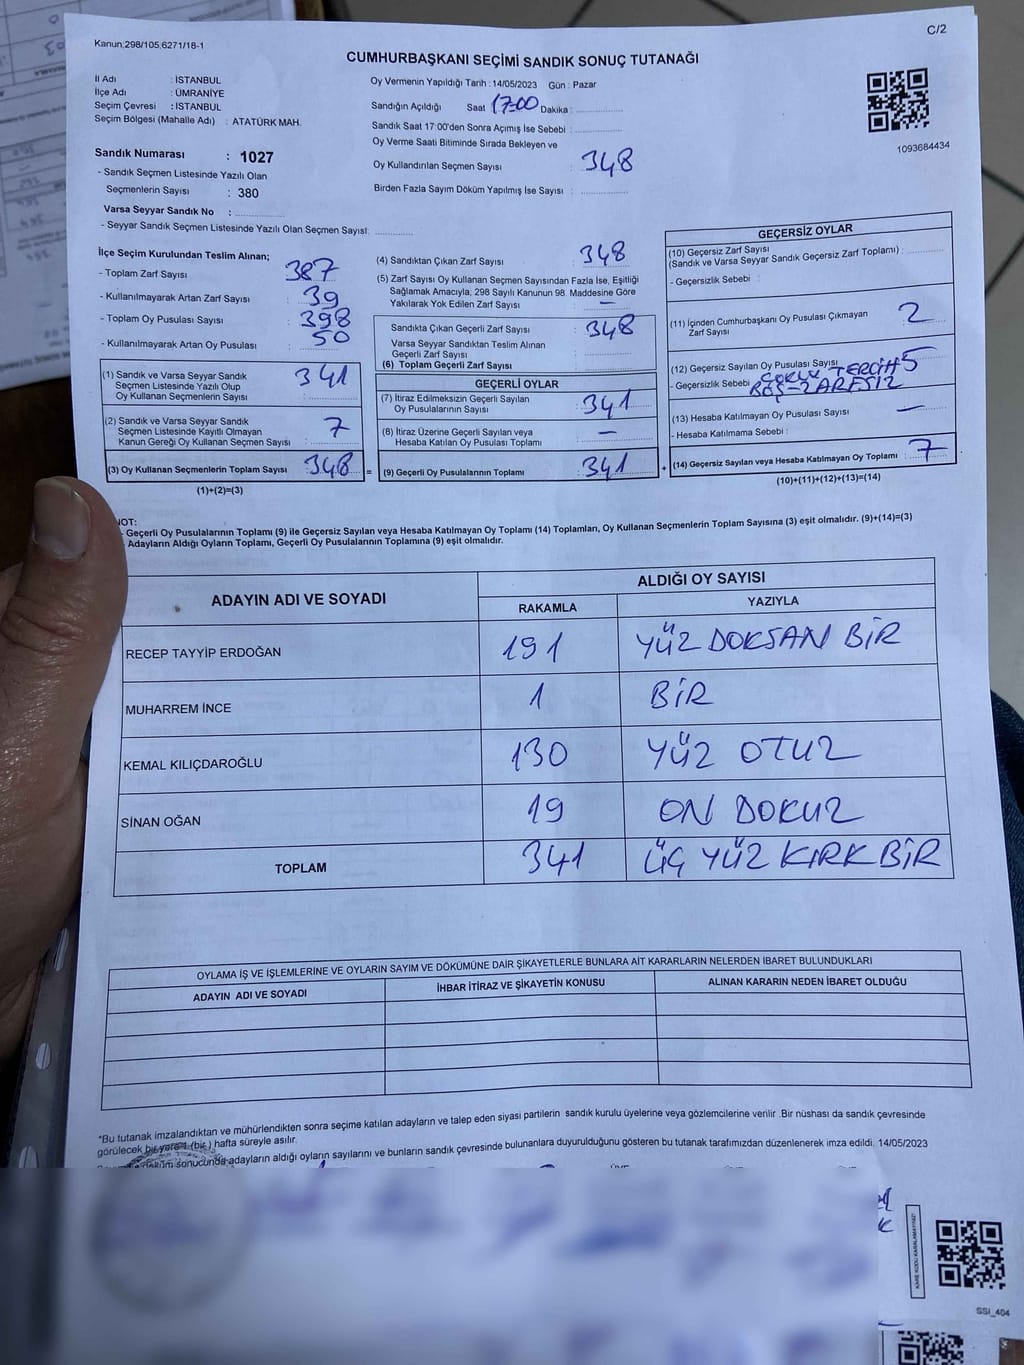 C/2
Kanun:298/105,6271/18-1
CUMHURBAŞKANI SEÇİMİ SANDIK SONUÇ TUTANAĞI
İl Adı : İSTANBUL
İlçe Adı : ÜMRANİYE
Seçim Çevresi : İSTANBUL
Seçim Bölgesi (Mahalle Adı) : ATATÜRK MAH.
Oy Vermenin Yapıldığı Tarih : 14/05/2023 Gün : Pazar
Sandığın Açıldığı Saat 17:00 Dakika :
Sandık Saat 17:00'den Sonra Açımış İse Sebebi :
Oy Verme Saati Bitiminde Sırada Bekleyen ve
Oy Kullandırılan Seçmen Sayısı : 348
Birden Fazla Sayım Döküm Yapılmış İse Sayısı :
1093684434
Sandık Numarası : 1027
- Sandık Seçmen Listesinde Yazılı Olan
Seçmenlerin Sayısı : 380
Varsa Seyyar Sandık No :
- Seyyar Sandık Seçmen Listesinde Yazılı Olan Seçmen Sayısı:
İlçe Seçim Kurulundan Teslim Alınan;
- Toplam Zarf Sayısı : 387
- Kullanılmayarak Artan Zarf Sayısı : 39
- Toplam Oy Pusulası Sayısı : 398
- Kullanılmayarak Artan Oy Pusulası : 50
(1) Sandık ve Varsa Seyyar Sandık
Seçmen Listesinde Yazılı Olup
Oy Kullanan Seçmenlerin Sayısı : 341
(2) Sandık ve Varsa Seyyar Sandık
Seçmen Listesinde Kayıtlı Olmayan
Kanun Gereği Oy Kullanan Seçmen Sayısı : 7
(3) Oy Kullanan Seçmenlerin Toplam Sayısı : 348 =
(1)+(2)=(3)
(4) Sandıktan Çıkan Zarf Sayısı : 348
(5) Zarf Sayısı Oy Kullanan Seçmen Sayısından Fazla İse, Eşitliği
Sağlamak Amacıyla, 298 Sayılı Kanunun 98. Maddesine Göre
Yakılarak Yok Edilen Zarf Sayısı : —
Sandıkta Çıkan Geçerli Zarf Sayısı : 348
Varsa Seyyar Sandıktan Teslim Alınan
Geçerli Zarf Sayısı :
(6) Toplam Geçerli Zarf Sayısı :
GEÇERLİ OYLAR
(7) İtiraz Edilmeksizin Geçerli Sayılan
Oy Pusulalarının Sayısı : 341
(8) İtiraz Üzerine Geçerli Sayılan veya
Hesaba Katılan Oy Pusulası Toplamı : —
(9) Geçerli Oy Pusulalarının Toplamı : 341 +
GEÇERSİZ OYLAR
(10) Geçersiz Zarf Sayısı
(Sandık ve Varsa Seyyar Sandık Geçersiz Zarf Toplamı) :
- Geçersizlik Sebebi :
(11) İçinden Cumhurbaşkanı Oy Pusulası Çıkmayan
Zarf Sayısı : 2
(12) Geçersiz Sayılan Oy Pusulası Sayısı : 5
- Geçersizlik Sebebi : ÇOKLU TERCİH
BOŞ-
(13) Hesaba Katılmayan Oy Pusulası Sayısı : —
- Hesaba Katılmama Sebebi :
(14) Geçersiz Sayılan veya Hesaba Katılmayan Oy Toplamı : 7
(10)+(11)+(12)+(13)=(14)
NOT:
Geçerli Oy Pusulalarının Toplamı (9) ile Geçersiz Sayılan veya Hesaba Katılmayan Oy Toplamı (14) Toplamları, Oy Kullanan Seçmenlerin Toplam Sayısına (3) eşit olmalıdır. (9)+(14)=(3)
Adayların Aldığı Oyların Toplamı, Geçerli Oy Pusulalarının Toplamına (9) eşit olmalıdır.
ADAYIN ADI VE SOYADI
ALDIĞI OY SAYISI
RAKAMLA YAZIYLA
RECEP TAYYİP ERDOĞAN 191 YÜZ DOKSAN BİR
MUHARREM İNCE 1 BİR
KEMAL KILIÇDAROĞLU 130 YÜZ OTUZ
SİNAN OĞAN 19 ON DOKUZ
TOPLAM 341 ÜÇ YÜZ KIRK BİR
OYLAMA İŞ VE İŞLEMLERİNE VE OYLARIN SAYIM VE DÖKÜMÜNE DAİR ŞİKAYETLERLE BUNLARA AİT KARARLARIN NELERDEN İBARET BULUNDUKLARI
ADAYIN ADI VE SOYADI İHBAR İTİRAZ VE ŞİKAYETİN KONUSU ALINAN KARARIN NEDEN İBARET OLDUĞU
*Bu tutanak imzalandıktan ve mühürlendikten sonra seçime katılan adayların ve talep eden siyasi partilerin sandık kurulu üyelerine veya gözlemcilerine verilir .Bir nüshası da sandık çevresinde
görülecek bir yere 1 (bir ) hafta süreyle asılır.
döküm sonucunda adayların aldığı oyların sayılarını ve bunların sandık çevresinde bulunanlara duyurulduğunu gösteren bu tutanak tarafımızdan düzenlenerek imza edildi. 14/05/2023
KARE KODU KARALAMAYINIZ!
SSI_404